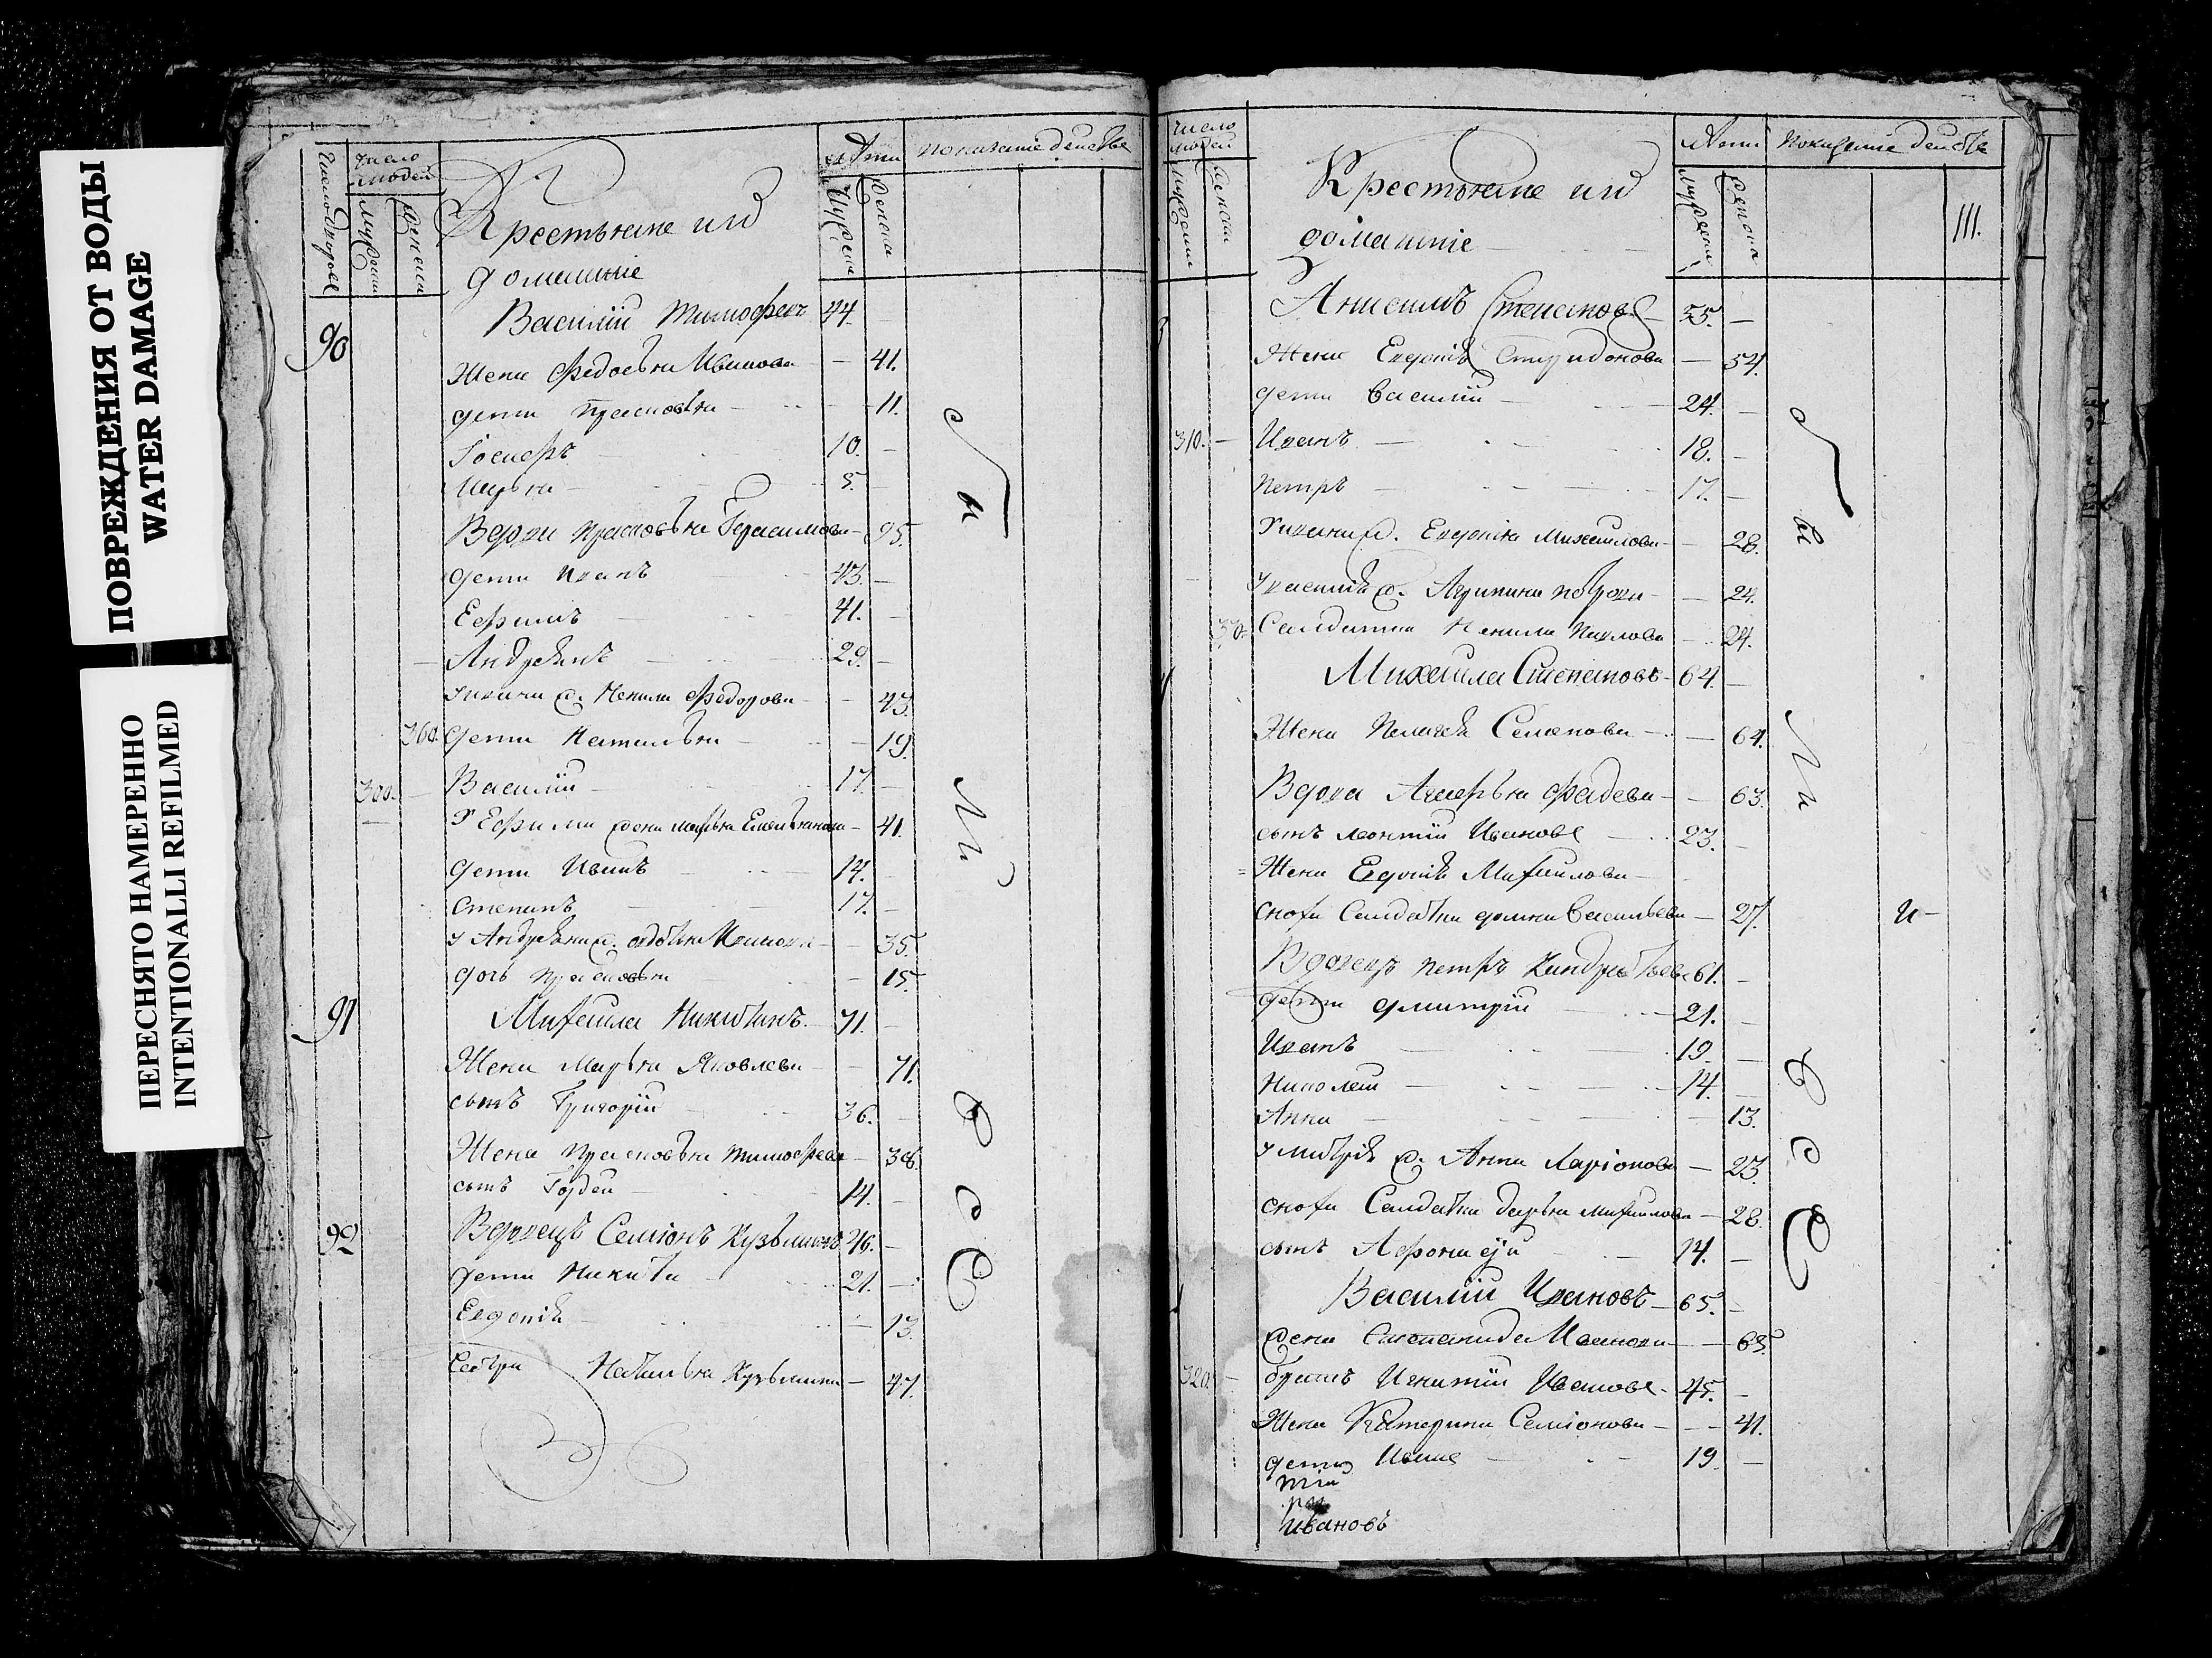 ПОВРЕЖДЕНИЯ ОТ ВОДЫ
WATER DAMAGE
ПЕРЕСНЯТО НАМЕРЕННО
INTENTIONALLI REFILMED
число людей
Крестьяне ихъ
домашние
лѣта
90
Василіи Тимофеевъ 44.
Жена Федосья Иванова — 41.
дети Прасковья — 11.
Іосифъ 10. —
Марья 5.
Вдова Прасковья Герасимова — 95.
дети Иванъ 43. —
Ефимъ 41. —
Андреянъ 29. —
У Ивана ж. Ненила Федорова — 43.
360. дети Наталья — 19.
300. Василіи 17. —
У Ефима жена Марья Емельянова — 41.
дети Иванъ 14. —
Степанъ 17. —
У Андреяна ж. Иванова — 35.
дочь Прасковья — 15.
91
Михаила Никитинъ 71. —
Жена Марья Яковлева — 71.
сынъ Григоріи 36. —
Жена Прасковья Тимофеева — 38.
сынъ Гордеи 14. —
92
Вдовецъ Семіонъ Кузьминъ 46. —
дети Никита 21. —
Евдокія — 13.
Сестра Наталья Кузьмина — 47.
число людей
Крестьяне ихъ
домашніе
лѣта
111.
Анисимъ Степановъ 55. —
Жена Евдокія Спиридонова — 54.
дети Василіи 24. —
310. Иванъ 18. —
Петръ 17. —
У Ивана ж. Евдокія Михаилова — 28.
У Василія ж. Агрипина Петрова — 24.
Салдатка Ненила Павлова — 24.
Михаила Степановъ 64. —
Жена Пелагея Семенова — 64.
Вдова Агафья Фадеева — 63.
сынъ Леонтіи Ивановъ 23. —
Жена Евдокія Михаилова —
сноха Салдатка Домна Васильева — 27.
Вдовецъ Петръ Кандратьевъ 61. —
дети Дмитріи 21. —
Иванъ 19. —
Николаи 14. —
Анна — 13.
У Митрія ж. Анна Ларіонова — 23.
сноха Салдатка Дарья Михаилова — 28.
сынъ Афонасіи 14. —
Василіи Ивановъ 65. —
жена Степанида Иванова — 63.
320. братъ Игнатіи Ивановъ 45. —
Жена Катерина Семіонова — 41.
дети Иванъ 19. —
Ивановъ